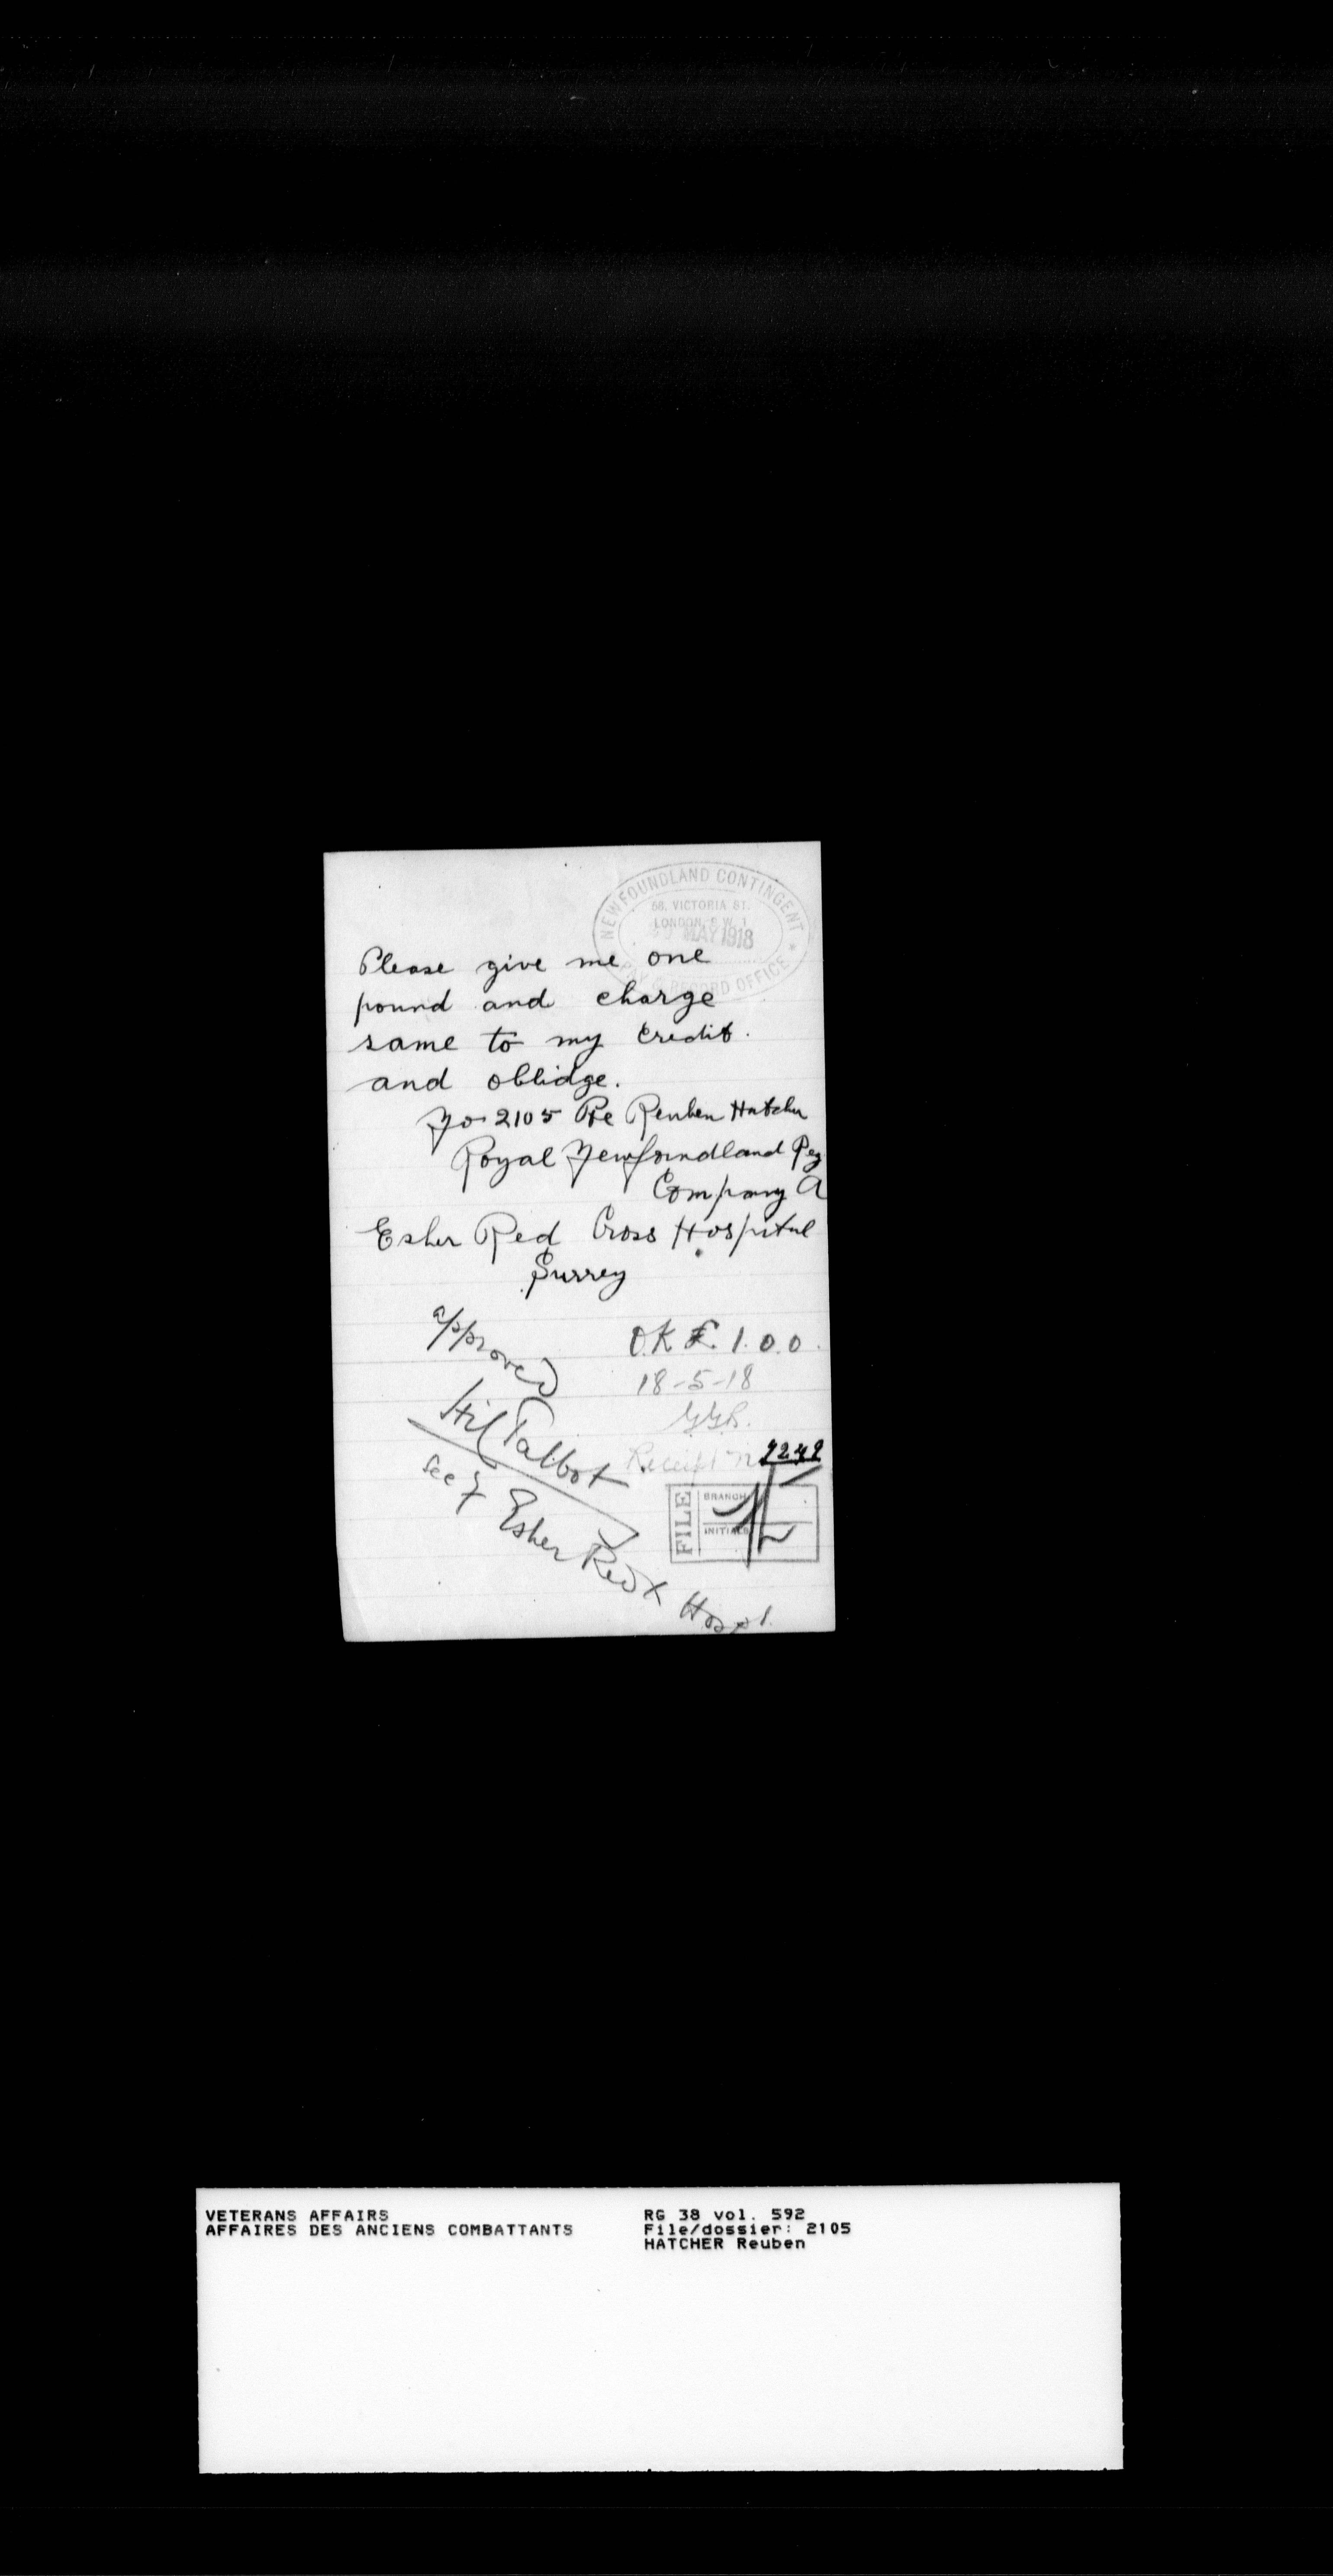 NEWFOUNDLAND CONTINGENT
68, VICTORIA ST.
LONDON, S.W.1
MAY 1918
PAY & RECORD OFFICE
Please give me one
pound and charge
same to my credit.
and oblidge.
No 2105 Pte Reuben Hatcher
Royal Newfoundland Reg
Company A
Esher Red Cross Hospital
Surrey
approved
Talbot
Secy
Esher Red X Hospl.
O.K £. 1. 0. 0.
18-5-18
Receipt No
FILE
BRANCH
INITIALS
VETERANS AFFAIRS
AFFAIRES DES ANCIENS COMBATTANTS
RG 38 vol. 592
File/dossier: 2105
HATCHER Reuben